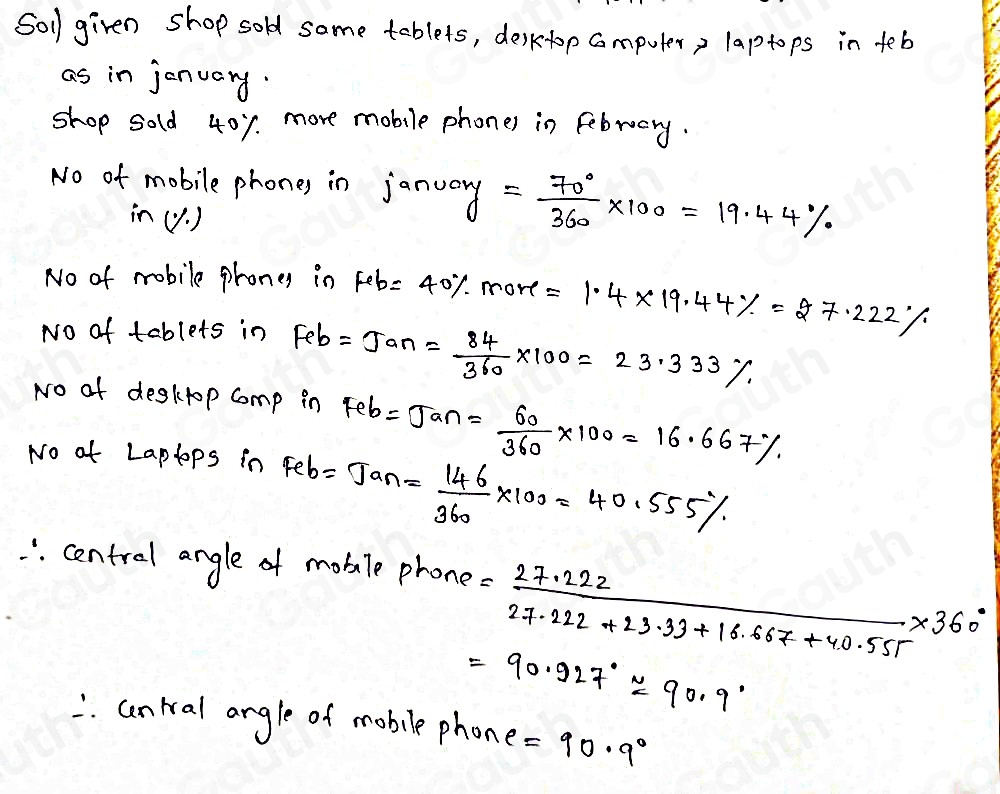 Sol) given shop sold same tablets, desktop computer, laptops in feb
as in january.
shop sold 40% more mobile phones in February.
No of mobile phones in january = 70°/360 ×100 = 19.44%
in (%)
No of mobile phones in Feb= 40% more = 1.4 × 19.44% = 27.222%
No of tablets in Feb = Jan = 84/360 ×100 = 23.333%
No of desktop comp in Feb = Jan = 60/360 ×100 = 16.667%
No of Laptops in Feb = Jan = 146/360 ×100 = 40.555%
∴ central angle of mobile phone = 27.222/27.222 + 23.33 + 16.667 + 40.555 ×360°
= 90.927° ≃ 90.9°
∴ central angle of mobile phone = 90.9°
Gauth